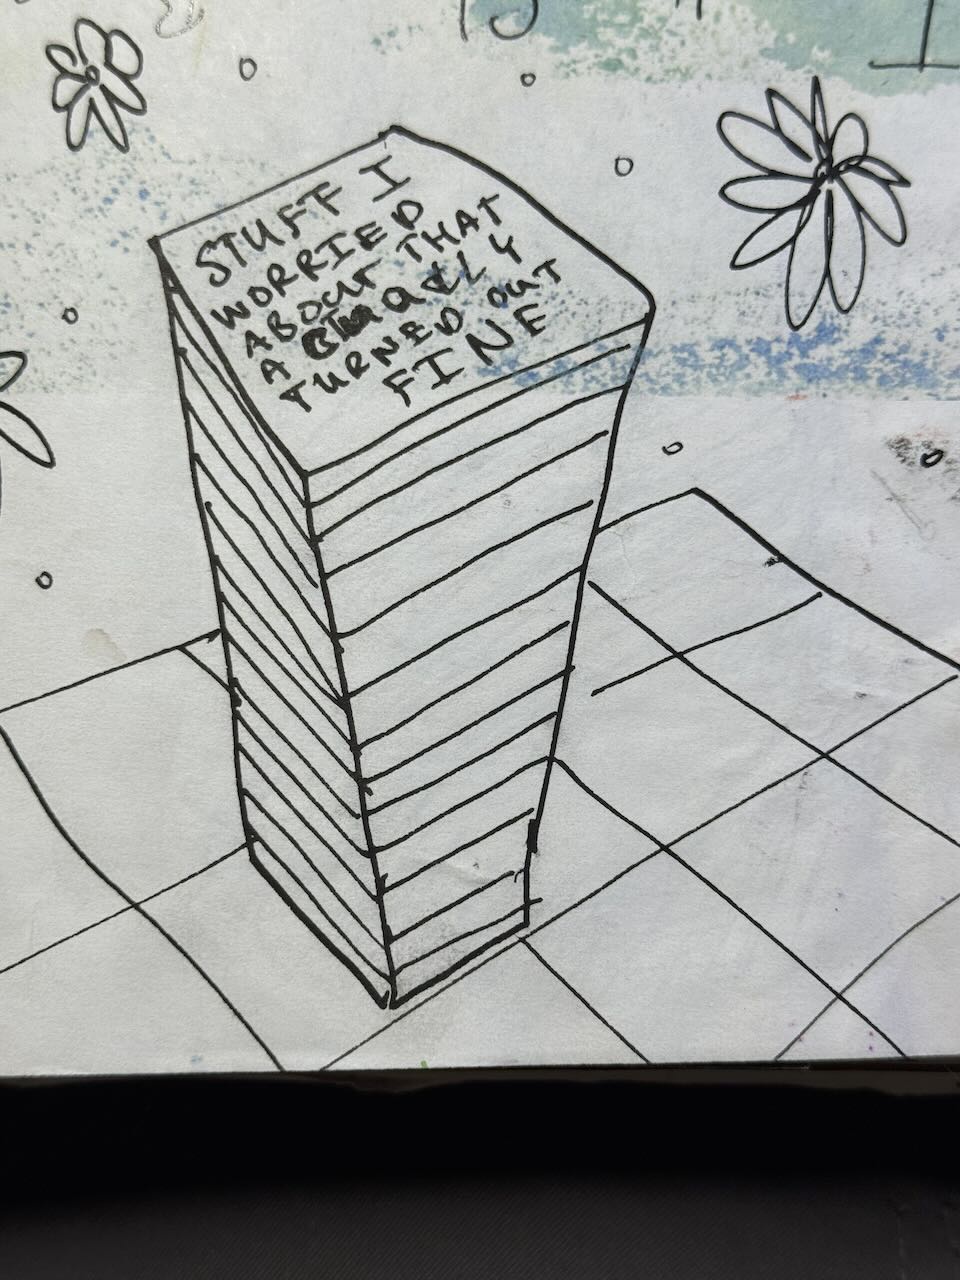 STUFF I
WORRIED
ABOUT THAT
ACTUALLY
TURNED OUT
FINE